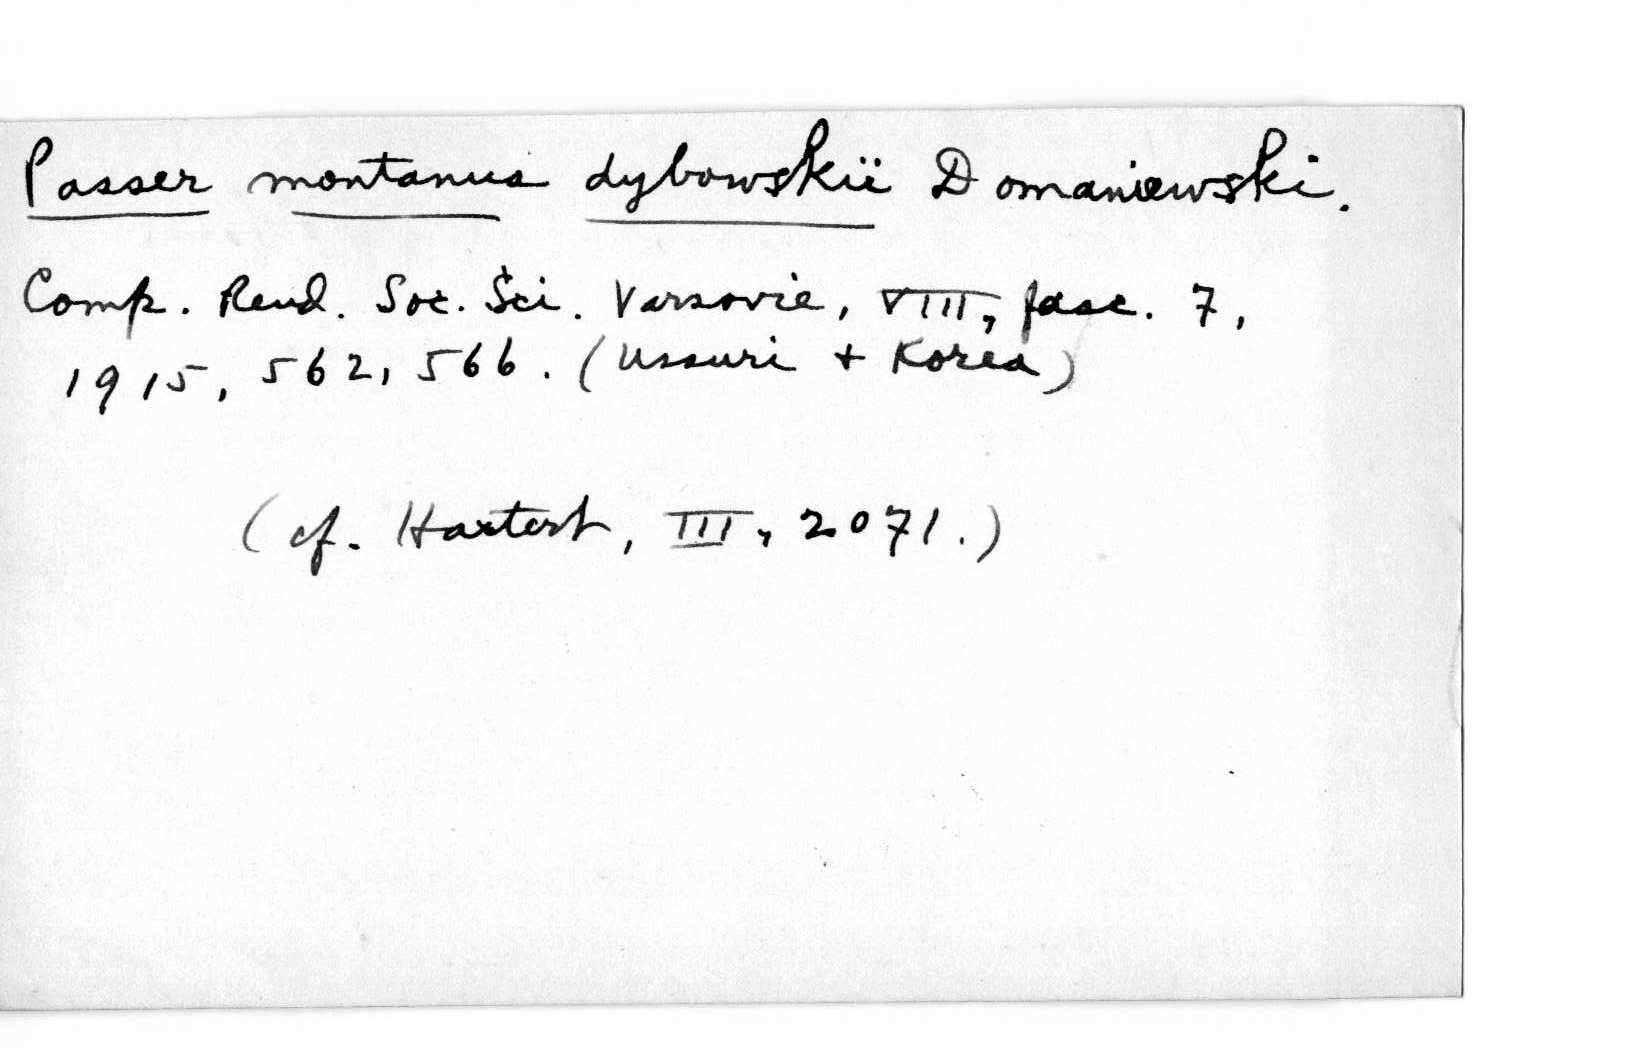 Passer montanus dybowskii Domaniewski.
Comp. Rend. Soc. Sci. Varsovie, VIII, fasc. 7,
1915, 562, 566. (Ussuri + Korea)
(cf. Hartert, III, 2071.)